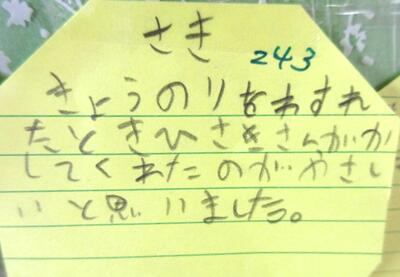 さき
243
きょうのりをわすれ
たときひさきさんがか
してくれたのがやさし
いと思いました。